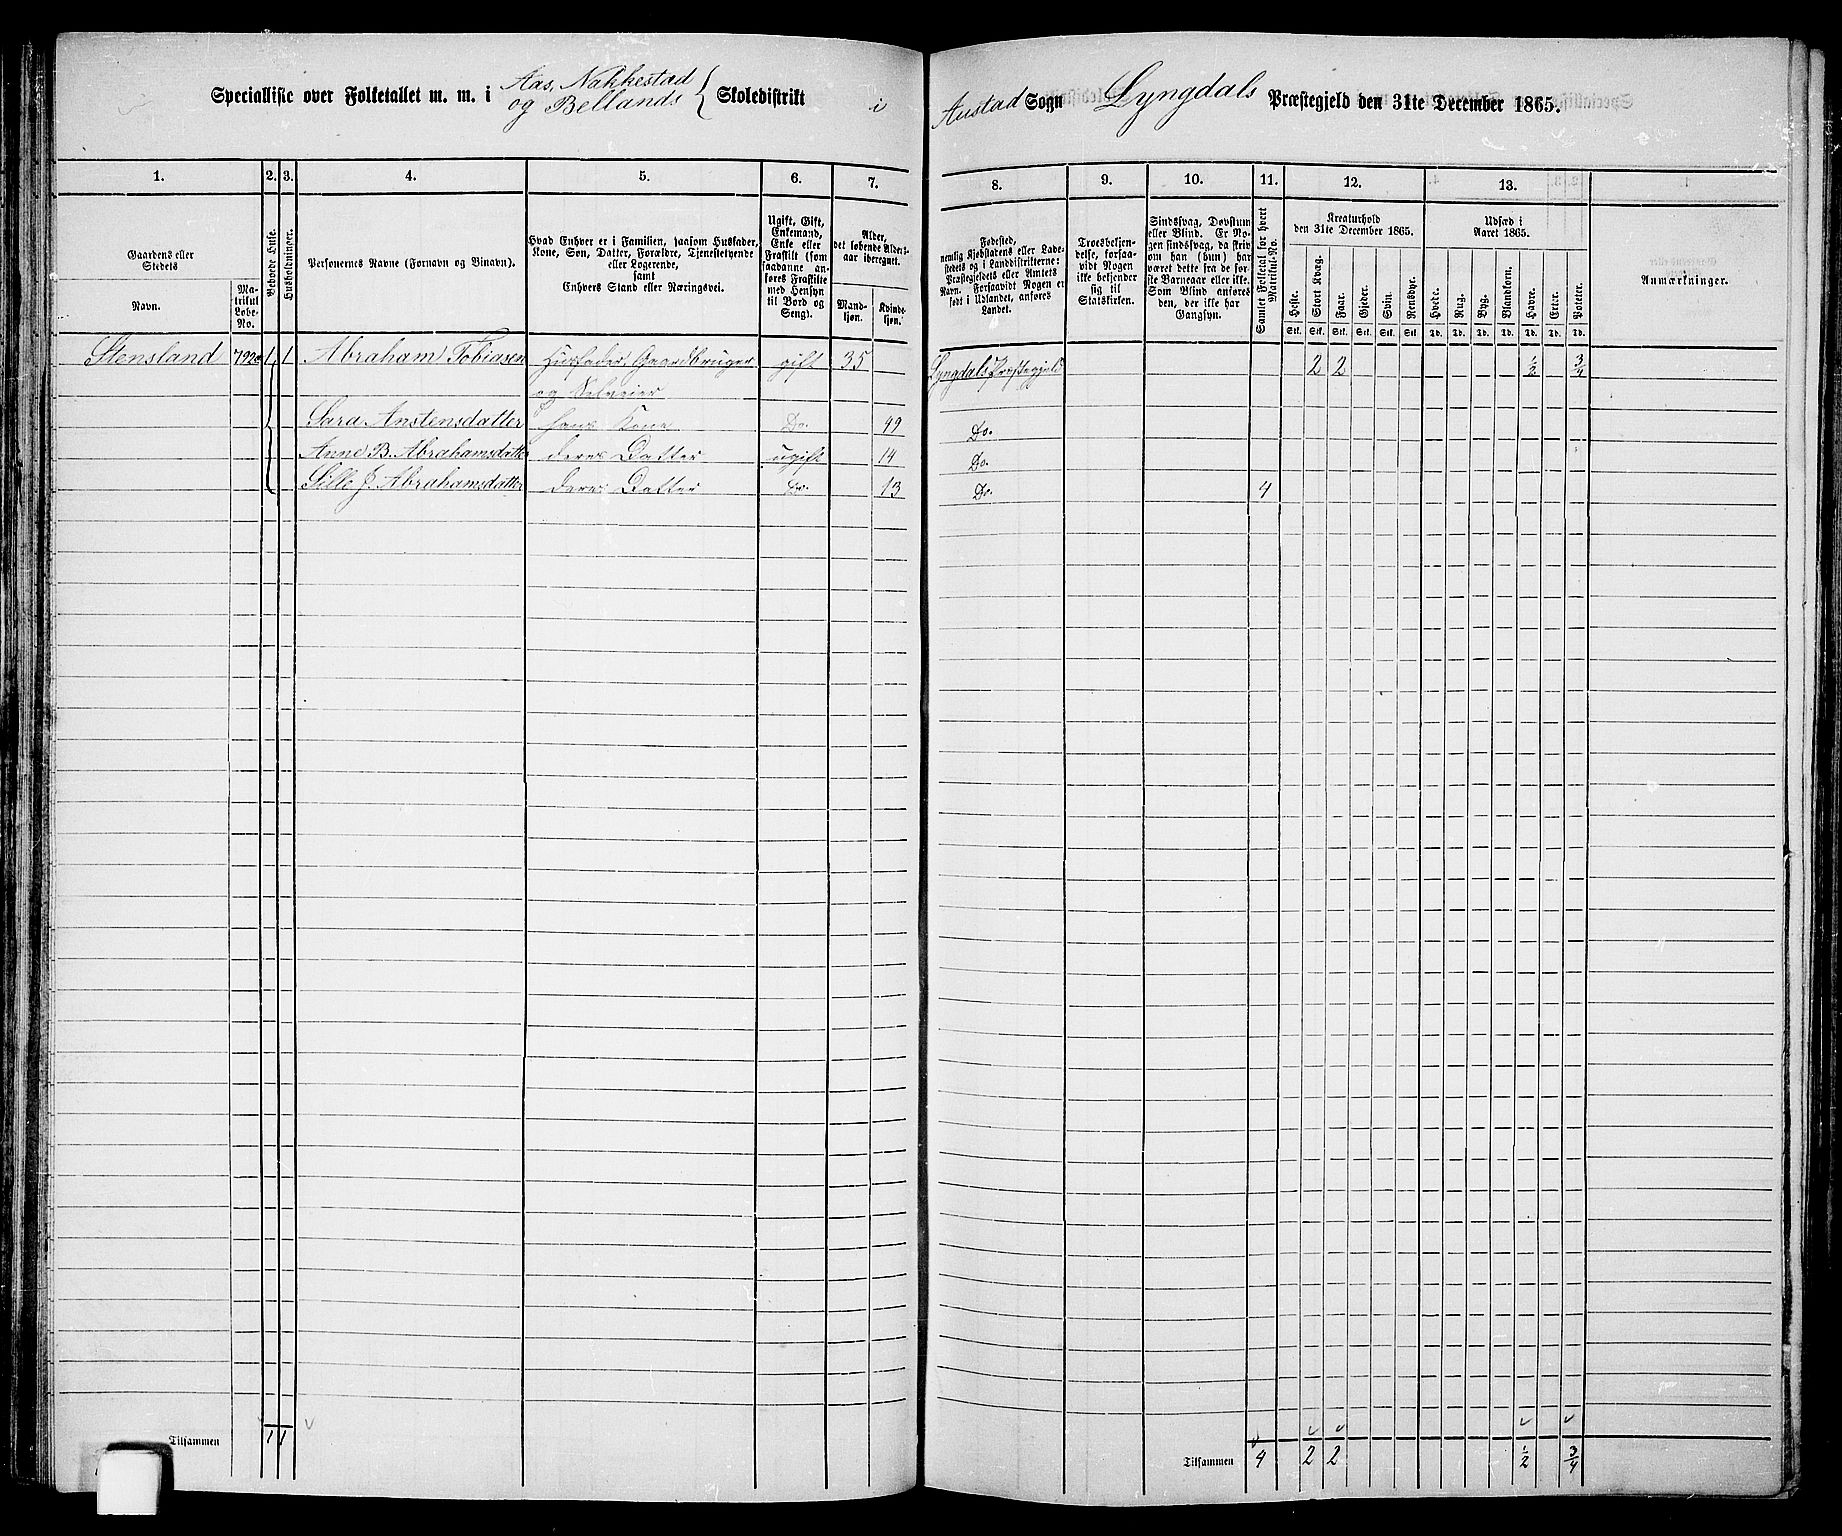 Specialliste over Folketallet m. m. i Aas, Nakkestad og Bellands Skoledistrikt i Austad Sogn Lyngdals Præstegjeld den 31te December 1865.
1. 2. 3. 4. 5. 6. 7. 8. 9. 10. 11. 12. 13.
Gaardens eller Stedets
Navn.
Matrikul Løbe-No.
Beboede Huse.
Husholdninger.
Personernes Navne (Fornavn og Binavn).
Hvad Enhver er i Familien, saasom Husfader, Kone, Søn, Datter, Forældre, Tjenestetyende eller Logerende, samt Enhvers Stand eller Næringsvei.
Ugift, Gift, Enkemand, Enke eller Fraskilt (som saadanne anføres Fraskilte med Hensyn til Bord og Seng).
Alder, det løbende Alders-aar iberegnet.
Mandkjøn.
Kvindekjøn.
Fødested, nemlig Kjøbstadens eller Ladestedets og i Landdistrikterne: Præstegjeldets eller Amtets Navn. Forsaavidt Nogen er født i Udlandet, anføres Landet.
Troesbekjendelse, forsaavidt Nogen ikke bekjender sig til Statskirken.
Sindssvag, Døvstum eller Blind. Er Nogen sindssvag, da skriv om han (hun) har været dette fra de første Barneaar eller ikke. Som Blind anføres den, der ikke har Gangsyn.
Samlet Folketal for hvert Matrikul-No.
Kreaturhold den 31te December 1865.
Heste. Stort Kvæg. Faar. Gjeder. Svin. Rensdyr.
Stk. Stk. Stk. Stk. Stk. Stk.
Udsæd i Aaret 1865.
Hvede. Rug. Byg. Blandkorn. Havre. Erter. Poteter.
Td. Td. Td. Td. Td. Td. Td.
Anmærkninger.
Stensland 1 1 Abraham Tobiasen Husfader, Gaardbruger gift 35 Lyngdals Præstegjeld 2 2 1/2 3/4
og Selveier
Sara Anstensdatter hans Kone Do. 49 Do.
Anne B. Abrahamsdatter deres Datter ugift 14 Do.
Sille J. Abrahamsdatter deres Datter Do. 13 Do. 4
Tilsammen 1 1 Tilsammen 4 2 2 1/2 3/4